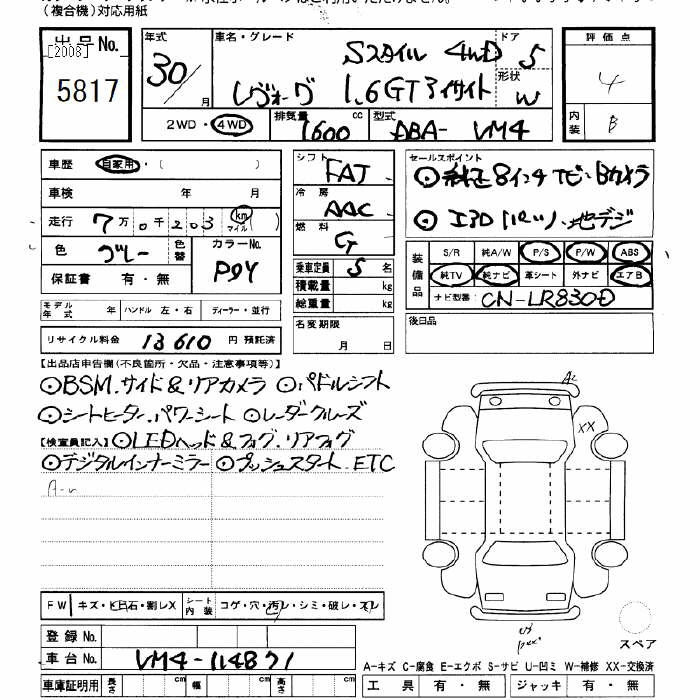 (複合機)対応用紙
出品No. [2008] 5817
年式 30/ 月
車名・グレード Sスタイル 4WD
レヴォーグ 1.6GTアイサイト
ドア 5
形状 W
2WD・4WD 排気量 1600 cc 型式 DBA- VM4
評価点 4
内装 B
車歴 自家用・( )
車検 年 月
走行 7万0千203 km マイル
色 グレー 色替 カラーNo. P9Y
保証書 有・無
シフト FAT
冷房 AAC
燃料 G
乗車定員 5 名
積載量 kg
総重量 kg
セールスポイント
◎純正8インチナビ・Bカメラ
◎ 地デジ
装備品 S/R 純A/W P/S P/W ABS
純TV 純ナビ 革シート 外ナビ エアB
ナビ型番 CN-LR830D
モデル年式 年 ハンドル 左・右 ディーラー・並行
リサイクル料金 13610 円 預託済
名変期限 月 日
後日品
【出品店申告欄(不良箇所・欠品・注意事項等)】
◎BSM.サイド&リアカメラ ◎パドルシフト
◎シートヒーター.パワーシート ◎レーダークルーズ
【検査員記入】◎LEDヘッド&フォグ.リアフォグ
◎デジタルインナーミラー ◎プッシュスタート.ETC
A
XX
FW キズ・ヒ石・割レX シート内装 コゲ・穴・汚レ・シミ・破レ・スレ
登録No.
車台No. VM4-114871
スペア
A-キズ C-腐食 E-エクボ S-サビ U-凹ミ W-補修 XX-交換済
車庫証明用 長さ cm 幅 cm 高さ cm
工具 有・無 ジャッキ 有・無